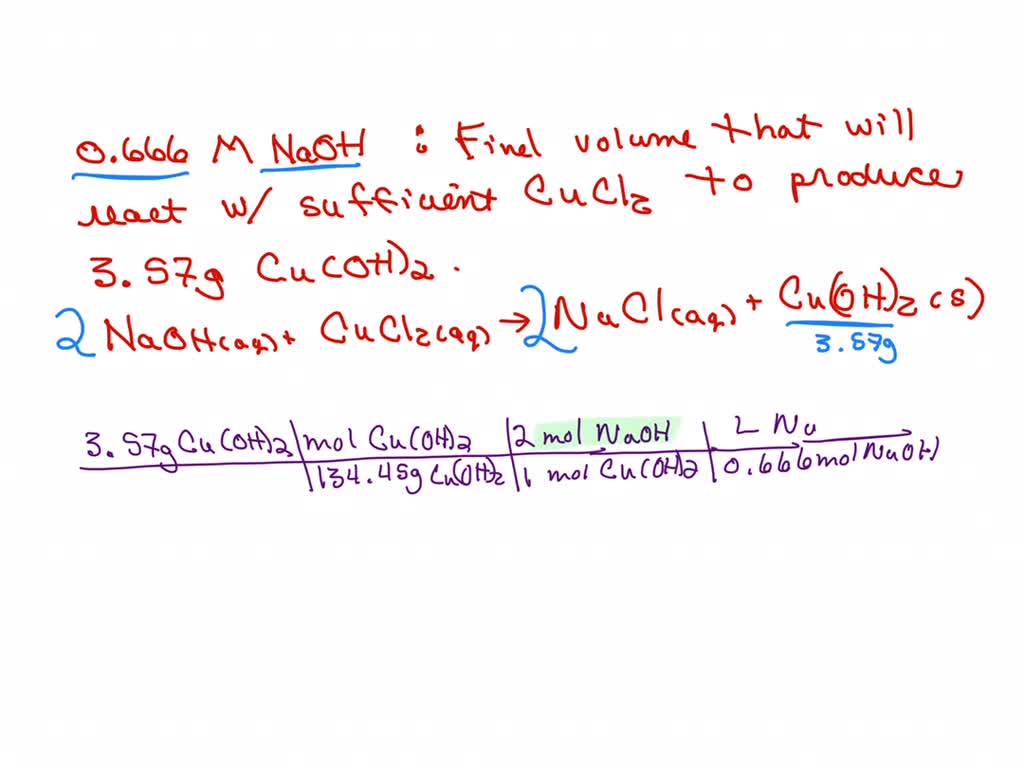 0.666 M NaOH : Find volume that will
react w/ sufficient CuCl2 to produce
3.57g Cu(OH)2.
2 NaOH(aq) + CuCl2(aq) → 2 NaCl(aq) + Cu(OH)2 (s)
3.57g
3.57g Cu(OH)2 | mol Cu(OH)2 | 2 mol NaOH | L Na
134.45g Cu(OH)2 | 1 mol Cu(OH)2 | 0.666 mol NaOH